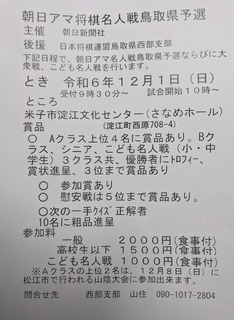 朝日アマ将棋名人戦鳥取県予選
主催　朝日新聞社
後援　日本将棋連盟鳥取県西部支部
下記日程で、朝日アマ名人戦鳥取県予選ならびに大
衆戦、こども名人戦を行います。
とき　令和6年12月1日（日）
受付9時30分～　試合開始10時～
ところ
米子市淀江文化センター(さなめホール)
(淀江町西原708-4)
賞品
○　Aクラス上位4名に賞品あり。Bク
ラス、シニア、こども名人戦（小・中
学生）3クラス共、優勝者にトロフィー、
賞状進呈、3位まで賞品あり
○　参加賞あり
○　慰安戦は5位まで賞品あり。
○次の一手クイズ正解者
10名に粗品進呈
参加料
一般　2000円(食事付)
高校生以下　1500円(食事付)
こども名人戦　1000円(食事付)
※Aクラスの上位2名は、12月8日（日）に
松江市で行われる山陰大会に参加出来ます。
問合せ先　西部支部　山住　090-1017-2804